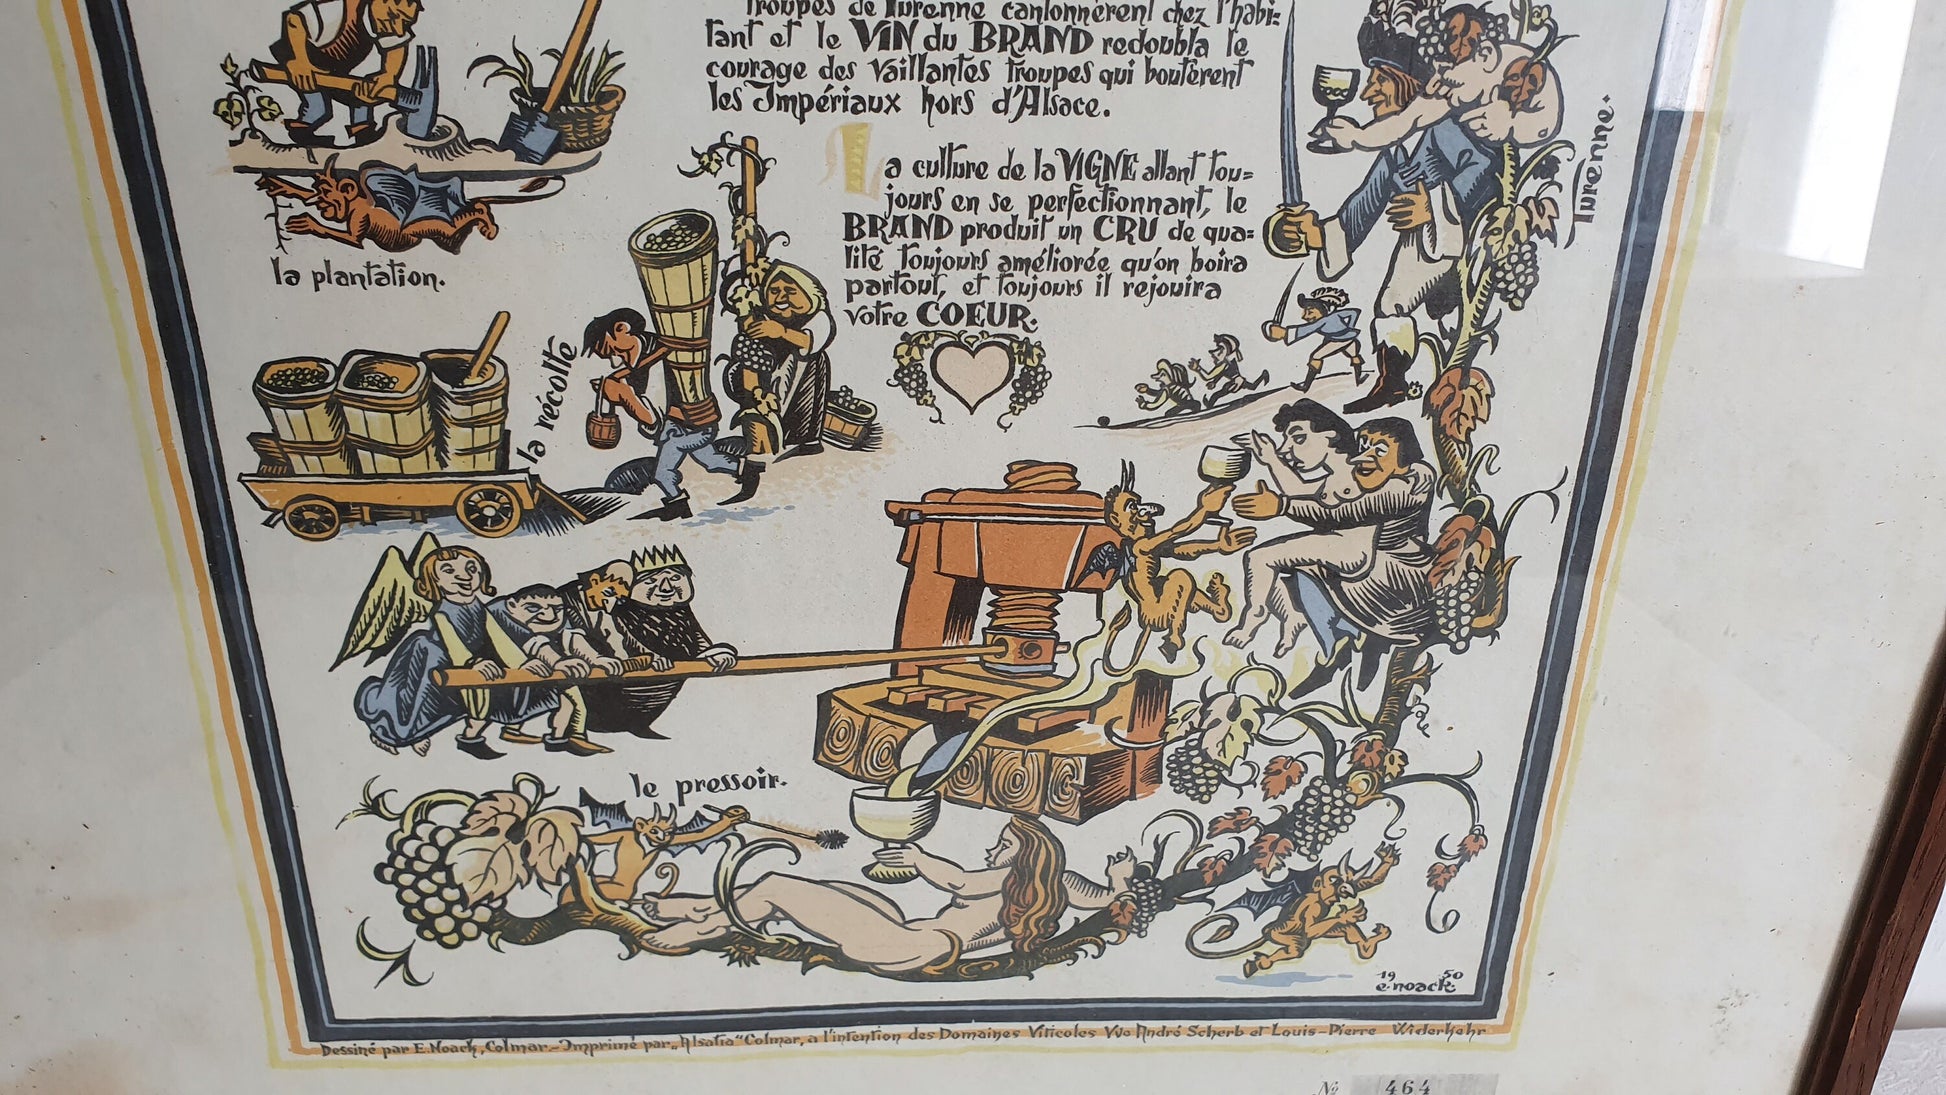 troupes de Turenne cantonnèrent chez l'habi=
tant et le VIN du BRAND redoubla le
courage des vaillantes troupes qui boutèrent
les Impériaux hors d'Alsace.
La culture de la VIGNE allant tou=
jours en se perfectionnant, le
BRAND produit un CRU de qua=
lité toujours améliorée qu'on boira
partout, et toujours il rejouira
votre COEUR.
Turenne.
la plantation.
la récolte
le pressoir.
1950
e. noack.
Dessiné par E. Noack, Colmar.- Imprimé par „Alsatia" Colmar, a l'intention des Domaines Viticoles Vve André Scherb et Louis-Pierre Widerkehr
№ 464